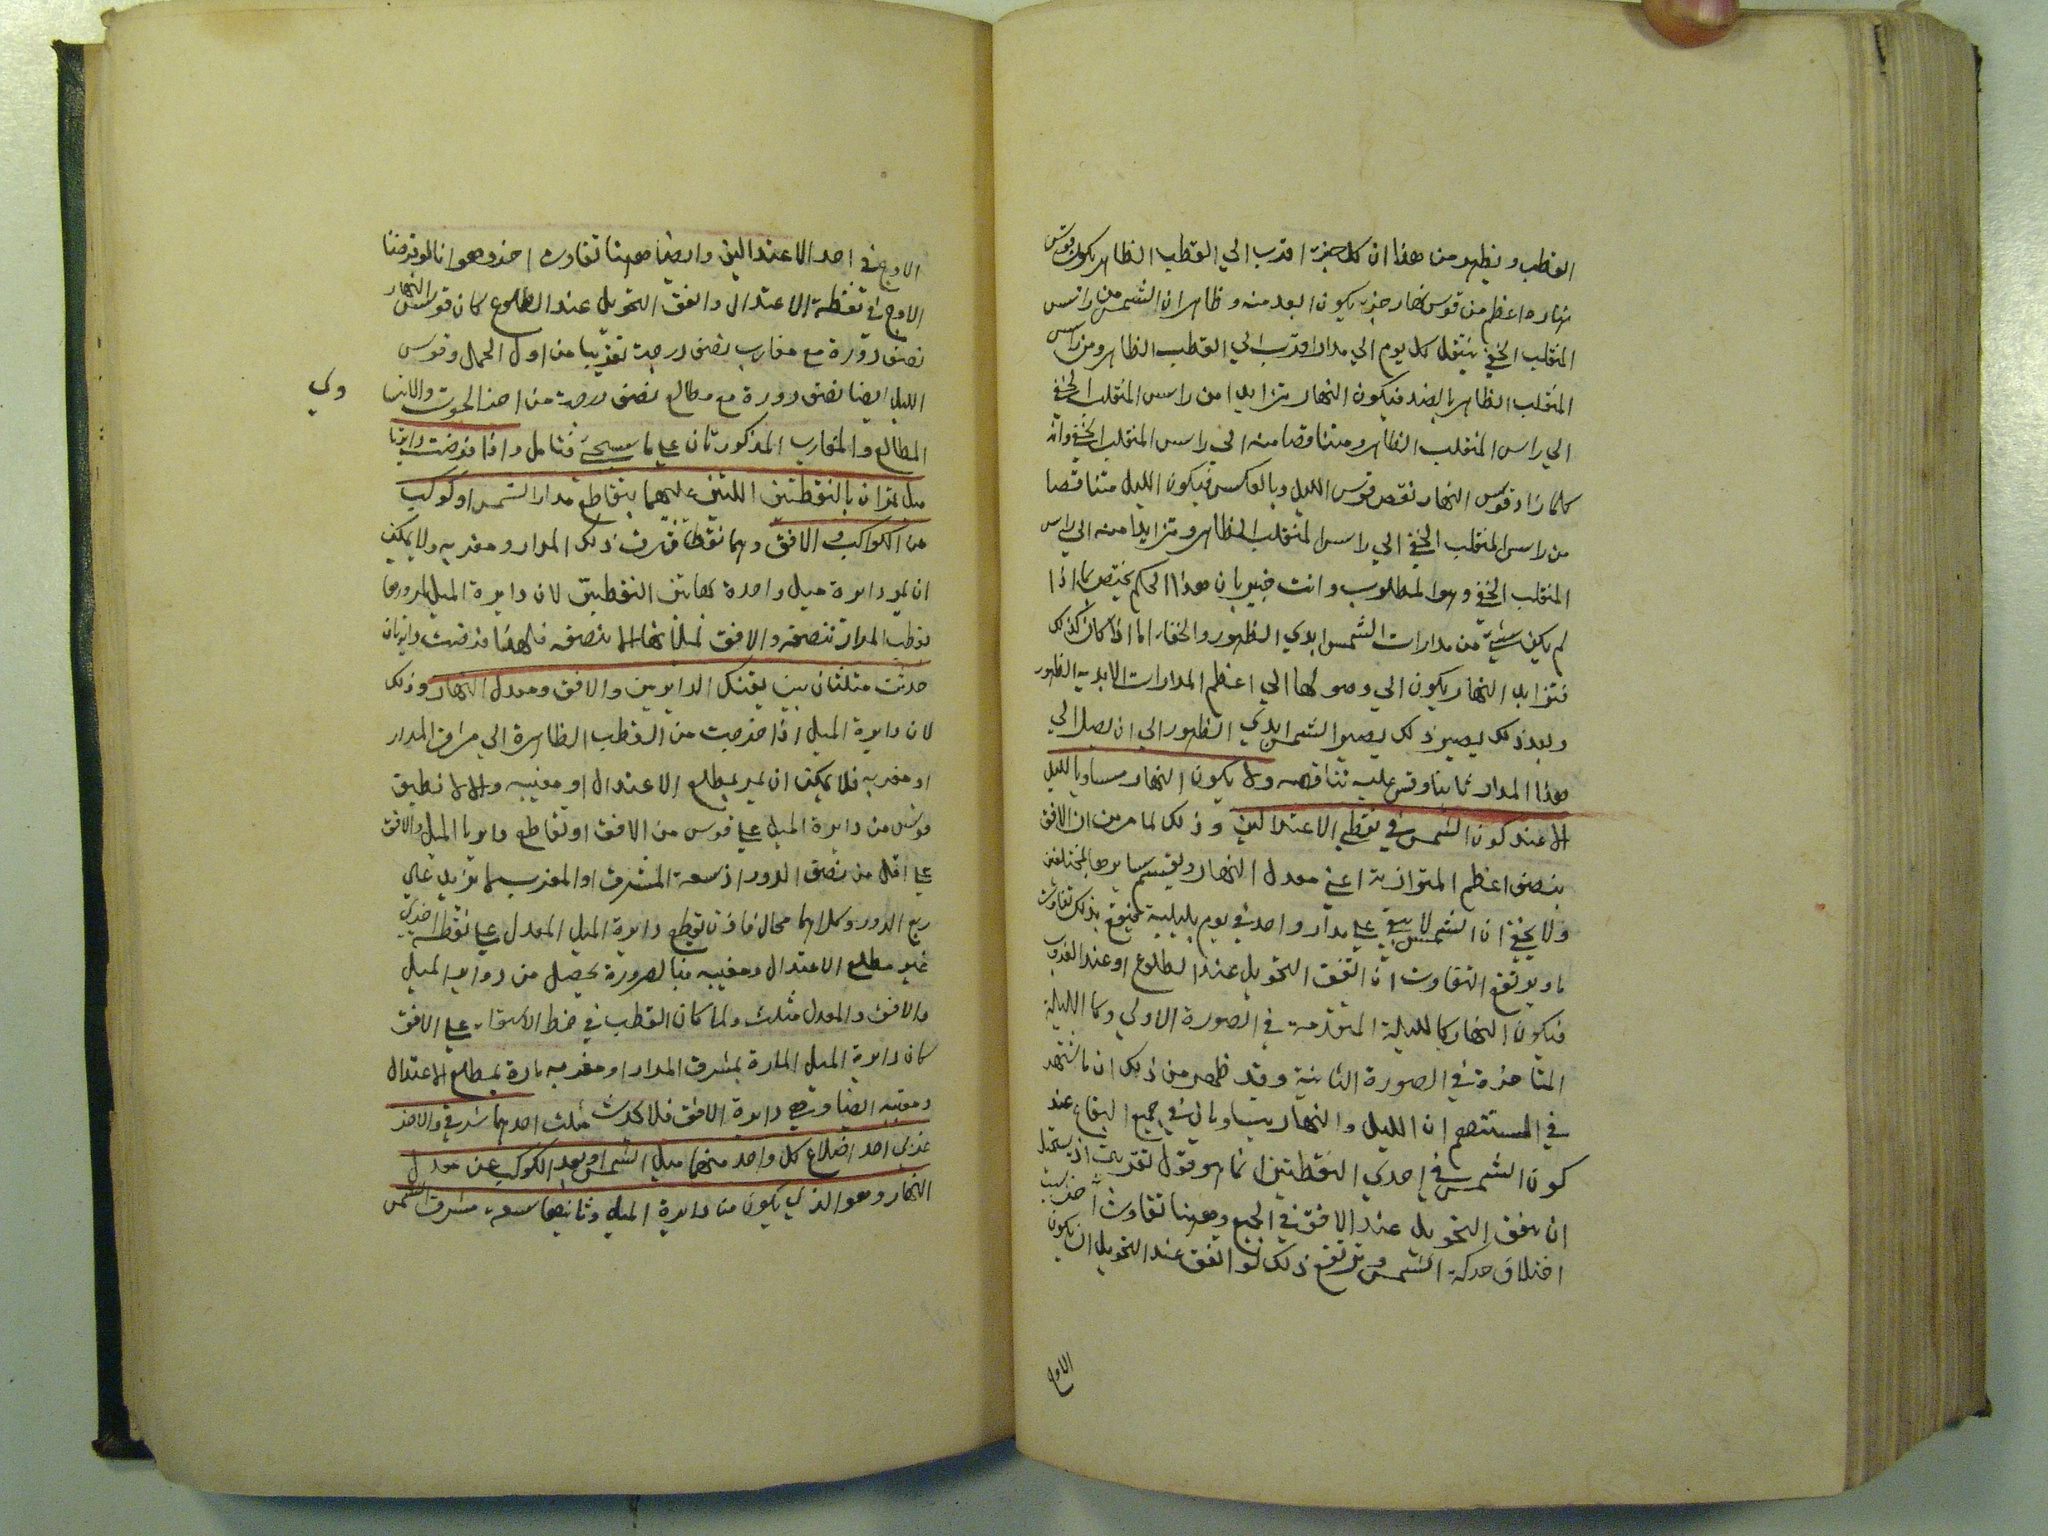 القطب ويظهر من هذا ان كل جزء اقرب الي القطب الظاهر يكون قوس
نهاره اعظم من قوس نهار جزء يكون ابعد منه وظاهر ان الشمس من راس
المنقلب الخفي ينتقل كل يوم الي مدار اقرب الي القطب الظاهر ومن راس
المنقلب الظاهر بالضد فيكون النهار متزايدا من راس المنقلب الخفي
الي راس المنقلب الظاهر ومتناقصا منه الي راس المنقلب الخفي وانه
كلما زاد قوس النهار نقص قوس الليل وبالعكس فيكون الليل متناقصا
من راس المنقلب الخفي الي راس المنقلب الظاهر ومتزايدا منه الي راس
المنقلب الخفي وهو المطلوب وانت خبير بان هذا الحكم يختص بما اذا
لم يكن شيء من مدارات الشمس ابدي الظهور والخفاء اما اذا كان كذلك
فتزايد النهار يكون الي وصولها الي اعظم المدارات الابدية الظهور
وبعد ذلك يصير الشمس ابدي الظهور الي ان يصل الي
هذا المدار ثانيا وقس عليه تناقصه ولا يكون النهار مساويا لليل
الا عند كون الشمس في نقطتي الاعتدالين وذلك لما مر من ان الافق
ينصف اعظم المتوازية اعني معدل النهار ويقسم سايرها بمختلفين
ولا يخفي ان الشمس لا يبقي علي مدار واحد في يوم بليلته فيقع بذلك تفاوت
ما ويرتفع التفاوت ان اتفق التحويل عند الطلوع او عند الغروب
فيكون النهار كالليلة المتقدمة في الصورة الاولي وكالليلة
المتاخرة في الصورة الثانية وقد ظهر من ذلك ان ما اشتهر
في ان الليل والنهار يتساويان في جميع البقاع عند
كون الشمس في احدي النقطتين انما هو قول تقريبي اذ يستحيل
ان يتفق التحويل عند الافق في الجميع وههنا تفاوت آخر بسبب
اختلاف حركة الشمس ويرتفع ذلك لو اتفق عند التحويل ان يكون
الاوج
الاوج في احد الاعتدالين وايضا ههنا تفاوت اخر وهو انا لو فرضنا
الاوج في نقطة الاعتدال واتفق التحويل عند الطلوع كان قوس النهار
نصف دورة مع مغارب نصف درجة تقريبا من اول الحمل وقوس
الليل ايضا نصف دورة مع مطالع نصف درجة من اخر الحوت
المطالع والمغارب المذكورتان علي ما سيجيء فتامل واذا فرضت دايرتا
ميل تمران بالنقطتين اللتين عليهما يتقاطع مدار الشمس او كوكب
من الكواكب والافق وهما نقطتا مشرق ذلك المدار ومغربه ولا يمكن
ان يمر دايرة ميل واحدة بهاتين النقطتين لان دايرة الميل لمرورها
بقطب المدار تنصفه والافق لا ينصفه فلهذا فرضت دايرتان
حدثت مثلثان بين تينك الدايرتين والافق ومعدل النهار وذلك
لان دايرة الميل اذا خرجت من القطب الظاهرة الي مشرق المدار
او مغربه فلا يمكن ان يمر بمطلع الاعتدال او مغيبه والا لانطبق
قوس من دايرة الميل علي قوس من الافق او تقاطع دايرتا الميل والافق
علي اقل من نصف الدور اذ سعة المشرق او المغرب مما تزيد علي
ربع الدور وكلاهما محال فاذن تقطع دايرة الميل المعدل علي نقطة اخري
غير مطلع الاعتدال ومغيبه فبالضرورة يحصل من دواير الميل
والافق والمعدل مثلث ولما كان القطب في خط الاستواء علي الافق
كان دايرة الميل المارة بمشرق المدار او مغربه مارة بمطلع الاعتدال
ومغيبه ايضا دايرة الافق فلا يحدث مثلث احدهما شرقي والاخر
غربي احد اضلاع كل واحد منهما ميل الشمس او بعد الكوكب عن معدل
النهار وهو الذي يكون من دايرة الميل وثانيهما سعة مشرق الشمس